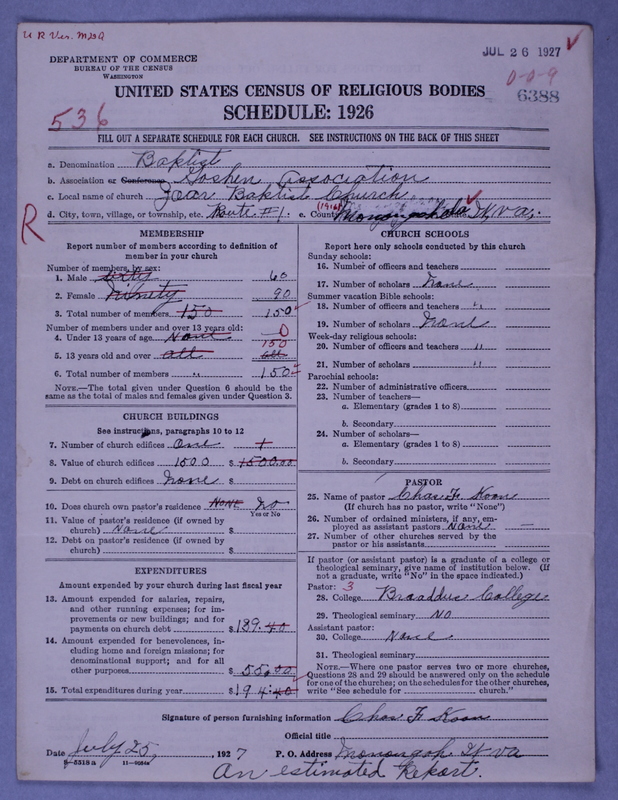 U R Ver. M29Q
JUL 26 1927 ✓
DEPARTMENT OF COMMERCE
BUREAU OF THE CENSUS
WASHINGTON
0-0-9
UNITED STATES CENSUS OF RELIGIOUS BODIES
6388
536
SCHEDULE: 1926
FILL OUT A SEPARATE SCHEDULE FOR EACH CHURCH. SEE INSTRUCTIONS ON THE BACK OF THIS SHEET
a. Denomination Baptist
b. Association or Conference Goshen Association
c. Local name of church Zoar Baptist Church
R
d. City, town, village, or township, etc. Route #1. e. County (1916) Monongahala W, va,
MEMBERSHIP
Report number of members according to definition of
member in your church
Number of members, by sex:
1. Male sixty 60
2. Female Ninety 90
3. Total number of members 150 150
Number of members under and over 13 years old:
4. Under 13 years of age None 0
5. 13 years old and over all 150 all
6. Total number of members " 150
NOTE.—The total given under Question 6 should be the
same as the total of males and females given under Question 3.
CHURCH BUILDINGS
See instructions, paragraphs 10 to 12
7. Number of church edifices One 1
8. Value of church edifices 1500 $ 1500.00
9. Debt on church edifices None $
10. Does church own pastor's residence NONE No
Yes or No
11. Value of pastor's residence (if owned by
church) None $
12. Debt on pastor's residence (if owned by
church) $
EXPENDITURES
Amount expended by your church during last fiscal year
13. Amount expended for salaries, repairs,
and other running expenses; for im-
provements or new buildings; and for
payments on church debt $ 139.40
14. Amount expended for benevolences, in-
cluding home and foreign missions; for
denominational support; and for all
other purposes $ 55.00
15. Total expenditures during year $ 194.40
CHURCH SCHOOLS
Report here only schools conducted by this church
Sunday schools:
16. Number of officers and teachers
17. Number of scholars None
Summer vacation Bible schools:
18. Number of officers and teachers "
19. Number of scholars None
Week-day religious schools:
20. Number of officers and teachers "
21. Number of scholars "
Parochial schools:
22. Number of administrative officers
23. Number of teachers—
a. Elementary (grades 1 to 8)
b. Secondary
24. Number of scholars—
a. Elementary (grades 1 to 8)
b. Secondary
PASTOR
25. Name of pastor Chas F. Koon
(If church has no pastor, write "None")
26. Number of ordained ministers, if any, em-
ployed as assistant pastors None —
27. Number of other churches served by the
pastor or his assistants
If pastor (or assistant pastor) is a graduate of a college or
theological seminary, give name of institution below. (If
not a graduate, write "No" in the space indicated.)
Pastor: 3
28. College Broaddus College
29. Theological seminary NO
Assistant pastor:
30. College None
31. Theological seminary
NOTE.—Where one pastor serves two or more churches,
Questions 28 and 29 should be answered only on the schedule
for one of the churches; on the schedules for the other churches,
write "See schedule for church."
Signature of person furnishing information Chas F. Koon
Official title
Date July 25, 1927 P. O. Address Monongah W va
8-5518a
An estimated Report.